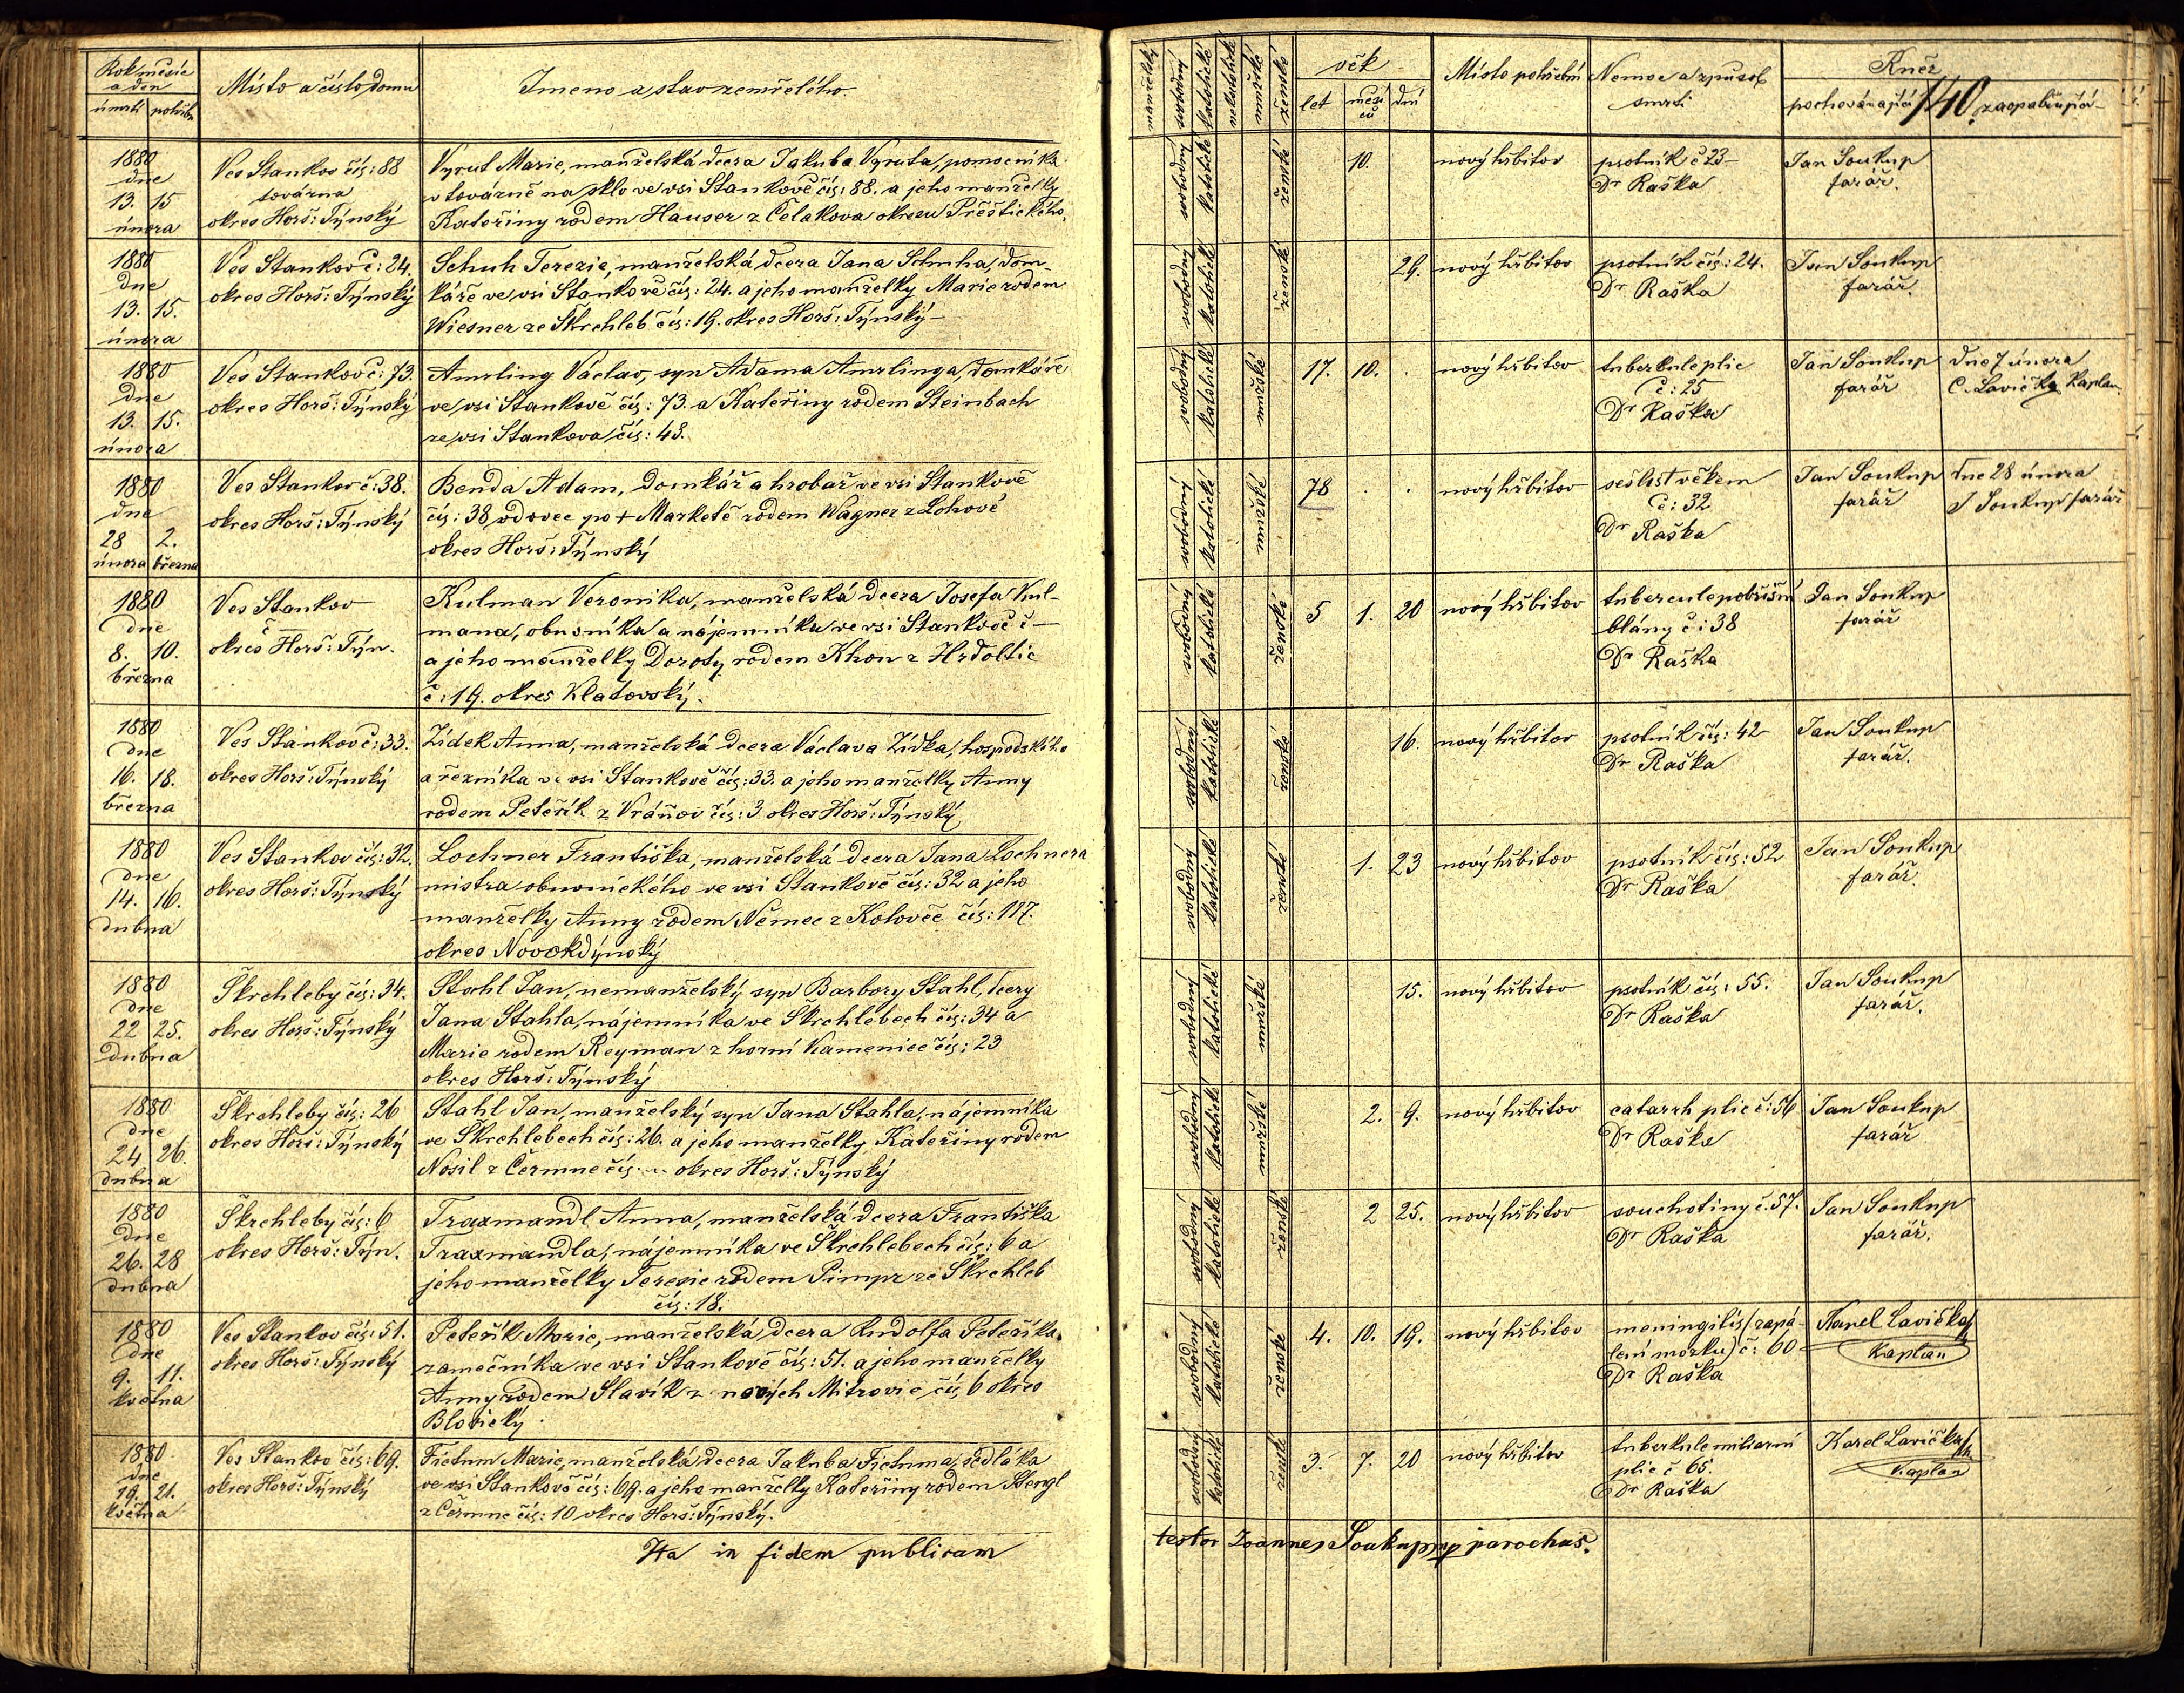 Rok měsíc
a den
úmrtí pohřbu
Místo a číslo domu
Jmeno a stav zemřelého.
manželský
svobodný
katolické
nekatolické
mužské
ženské
věk
let
měsíců
dnů
Místo pohřební
Nemoc a způsob
smrti
Kněz
pochovávající
140
zaopatřující
1880
dne
13. 15
února
Ves Stankov čís: 88
továrna
okres Horš: Týnský
Vyrut Marie, manželská dcera Jakuba Vyruta, pomocníka
v továrně na sklo ve vsi Stankově čís: 88. a jeho manželky
Kateřiny rodem Hauser z Čelakova okresu Přeštického.
svobodný katolické ženské
10.
nový hřbitov
psotník č 23
Dr Raška
Jan Soukup
farář.
1880
dne
13. 15.
února
Ves Stankov č: 24.
okres Horš: Týnský
Schuh Terezie, manželská dcera Jana Schuha, dom-
káře ve vsi Stankově čís: 24. a jeho manželky Marie rodem
Wiesner ze Škrchleb čís: 19. okres Horš: Týnský
svobodný katolické ženské
29.
nový hřbitov
psotník čís: 24.
Dr Raška
Jan Soukup
farář.
1880
dne
13. 15.
února
Ves Stankov č: 73.
okres Horš: Týnský
Amrling Václav, syn Adama Amrlinga, domkáře
ve vsi Stankově čís: 73. a Kateřiny rodem Steinbach
ze vsi Stankova čís: 43.
svobodný katolické mužské
17. 10. .
nový hřbitov
tuberkule plic
č: 25
Dr Raška
Jan Soukup
farář
dne 7 února
C. Lavička Kaplan.
1880
dne
28 2.
února března
Ves Stankov č: 38.
okres Horš: Týnský
Benda Adam, domkář a hrobař ve vsi Stankově
čís: 38, vdovec po + Marketě rodem Wagner z Lohové
okres Horš: Týnský
svobodný katolické mužské
78 . .
nový hřbitov
sešlost věkem
č: 32
Dr Raška
Jan Soukup
farář
dne 28 února
J Soukup farář
1880
dne
8. 10.
března
Ves Stankov
č —
okres Horš: Týn.
Kulman Veronika, manželská dcera Josefa Kul-
mana, obuvníka a nájemníka ve vsi Stankově č —
a jeho manželky Doroty rodem Khon z Hrdoltic
č: 19. okres Klatovský.
svobodný katolické ženské
5 1. 20
nový hřbitov
tubercule pobřišní
blány č: 38
Dr Raška
Jan Soukup
farář
1880
dne
16. 18.
března
Ves Stankov č: 33.
okres Horš: Týnský
Zídek Anna, manželská dcera Václava Zídka, hospodského
a řezníka ve vsi Stankově čís: 33. a jeho manželky Anny
rodem Peteřík z Vráňov čís: 3 okres Horš: Týnský
svobodný katolické ženské
16.
nový hřbitov
psotník čís: 42
Dr Raška
Jan Soukup
farář.
1880
dne
14. 16.
dubna
Ves Stankov čís: 32.
okres Horš: Týnský
Lochner Františka, manželská dcera Jana Lochnera
mistra obuvnického ve vsi Stankově čís: 32 a jeho
manželky Anny rodem Němec z Kolovče čís: 117.
okres Novokdýnský
svobodný katolické ženské
1. 23
nový hřbitov
psotník čís: 52
Dr Raška
Jan Soukup
farář.
1880
dne
22 25.
dubna
Škrchleby čís: 34.
okres Horš: Týnský
Stahl Jan, nemanželský syn Barbory Stahl, dcery
Jana Stahla, nájemníka ve Škrchlebech čís: 34 a
Marie rodem Reyman z horní Kamenice čís: 23
okres Horš: Týnský
svobodný katolické mužské
15.
nový hřbitov
psotník čís: 55.
Dr Raška
Jan Soukup
farář.
1880
dne
24 26.
dubna
Škrchleby čís: 26
okres Horš: Týnský
Stahl Jan, manželský syn Jana Stahla, nájemníka
ve Skrchlebech čís: 26. a jeho manželky Kateřiny rodem
Nosil z Čermne čís ... okres Horš: Týnský
svobodný katolické mužské
2. 9.
nový hřbitov
catarrh plic č: 56
Dr Raška
Jan Soukup
farář
1880
dne
26. 28
dubna
Škrchleby čís: 6
okres Horš: Týn.
Traxmandl Anna, manželská dcera Františka
Traxmandla, nájemníka ve Škrchlebech čís: 6 a
jeho manželky Terezie rodem Pimpr ze Škrchleb
čís: 18.
svobodný katolické ženské
2 25.
nový hřbitov
souchotiny č. 57.
Dr Raška
Jan Soukup
farář.
1880
dne
9. 11.
května
Ves Stankov čís: 51.
okres Horš: Týnský
Peteřík Marie, manželská dcera Rudolfa Peteříka
zamečníka ve vsi Stankově čís: 51. a jeho manželky
Anny rodem Slavík z nových Mitrovic čís 6 okres
Blovický.
svobodný katolické ženské
4. 10. 19.
nový hřbitov
meningitis (zapá-
lení mozku) č: 60
Dr Raška
Karel Lavička
Kaplan
1880
dne
19. 21.
května
Ves Stankov čís: 69.
okres Horš: Týnský
Fictum Marie, manželská dcera Jakuba Fictuma, sedláka
ve vsi Stankově čís: 69. a jeho manželky Kateřiny rodem Stengl
z Čermne čís: 10 okres Horš: Týnský.
svobodný katolické ženské
3. 7. 20
nový hřbitov
tuberkule miliarní
plic č 65.
Dr Raška
Karel Lavička
Kaplan
Ita in fidem publicam
testor Joannes Soukup mp parochus.